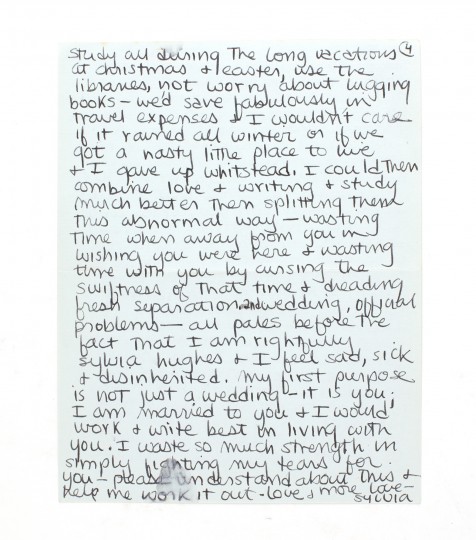 study all during The long vacations 4
at christmas & easter, use the
libraries, not worry about lugging
books – we'd save fabulously in
travel expenses & I wouldn't care
if it rained all winter or if we
got a nasty little place to live
& I gave up whitstead. I could Then
combine love & writing & study
much better then splitting them
This abnormal way – wasting
Time when away from you in
wishing you were here & wasting
time with you by cursing the
swiftness of That time & dreading
fresh separation. and wedding, official
problems – all pales before the
fact That I am rightfully
sylvia hughes & I feel sad, sick
& disinherited. my first purpose
is not just a wedding – it is you;
I am married to you & I would
work & write best in living with
you. I waste so much strength in
simply fighting my tears for
you – please understand about This &
help me work it out - love & more love –
sylvia